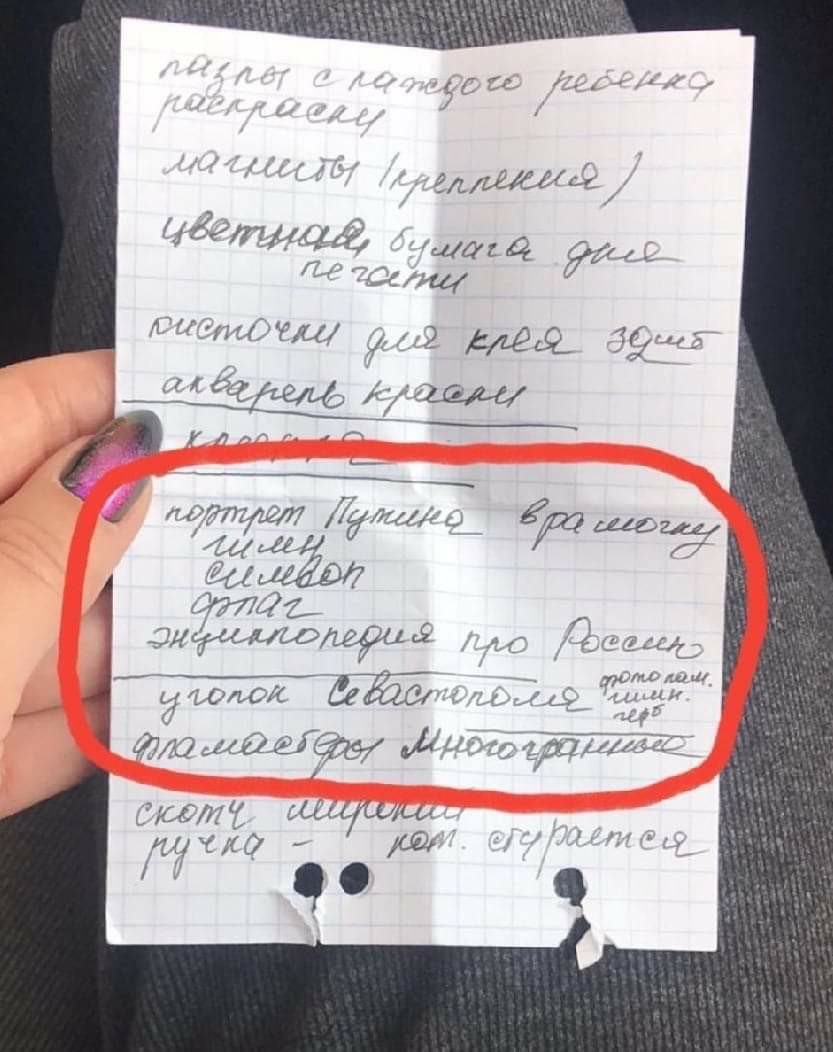 пазлы с каждого ребенка
раскраски
магниты (крепления)
цветная бумага для
печати
кисточки для клея 30шт
акварель краски
клеенка
портрет Путина в рамочку
гимн
символ
флаг
энциклопедия про Россию
уголок Севастополя фотопам.
гимн.
герб
фламастеры Многогранные
скотч широкий
ручка - кот. стирается